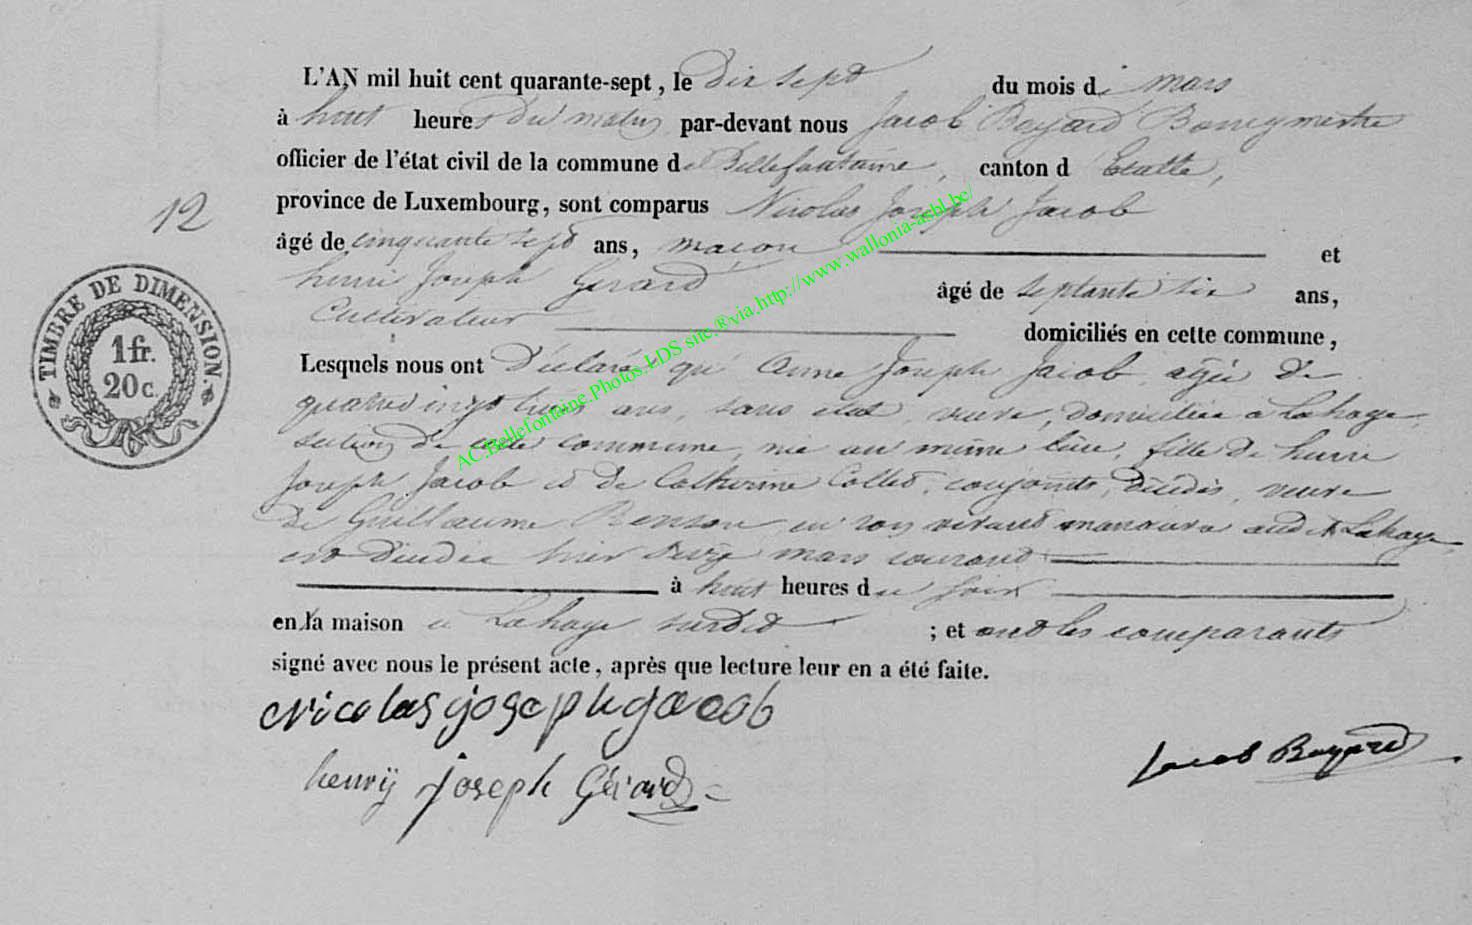 L'AN mil huit cent quarante-sept, le dix sept du mois de mars
à huit heures du matin par-devant nous Jacob Bayard Bourgmestre
officier de l'état civil de la commune de Bellefontaine, canton d'Etalle,
province de Luxembourg, sont comparus Nicolas Joseph Jacob
12
âgé de cinquante sept ans, macon et
henri Joseph Gerard âgé de septante six ans,
Cultivateur domiciliés en cette commune,
TIMBRE DE DIMENSION.
1 fr.
20 c.
Lesquels nous ont Déclaré que Anne Joseph Jacob agée de
quatre ans, sans etat, veuve, domiciliée a Lahage,
section de cette commune, née au même lieu, fille de henri
Joseph Jacob et de Catherine Collet, conjoints, décédés, veuve
de Guillaume Renson en son vivant manoeuvre audit Lahage,
est décédée hier seize mars courant
à huit heures du soir
en la maison a Lahage susdit ; et ont les comparants
signé avec nous le présent acte, après que lecture leur en a été faite.
Nicolas joseph jacob
henrÿ joseph Gérard
Jacob Bayard
AC.Bellefontaine.Photos.LDS site.®via.http://www.wallonia-asbl.be/